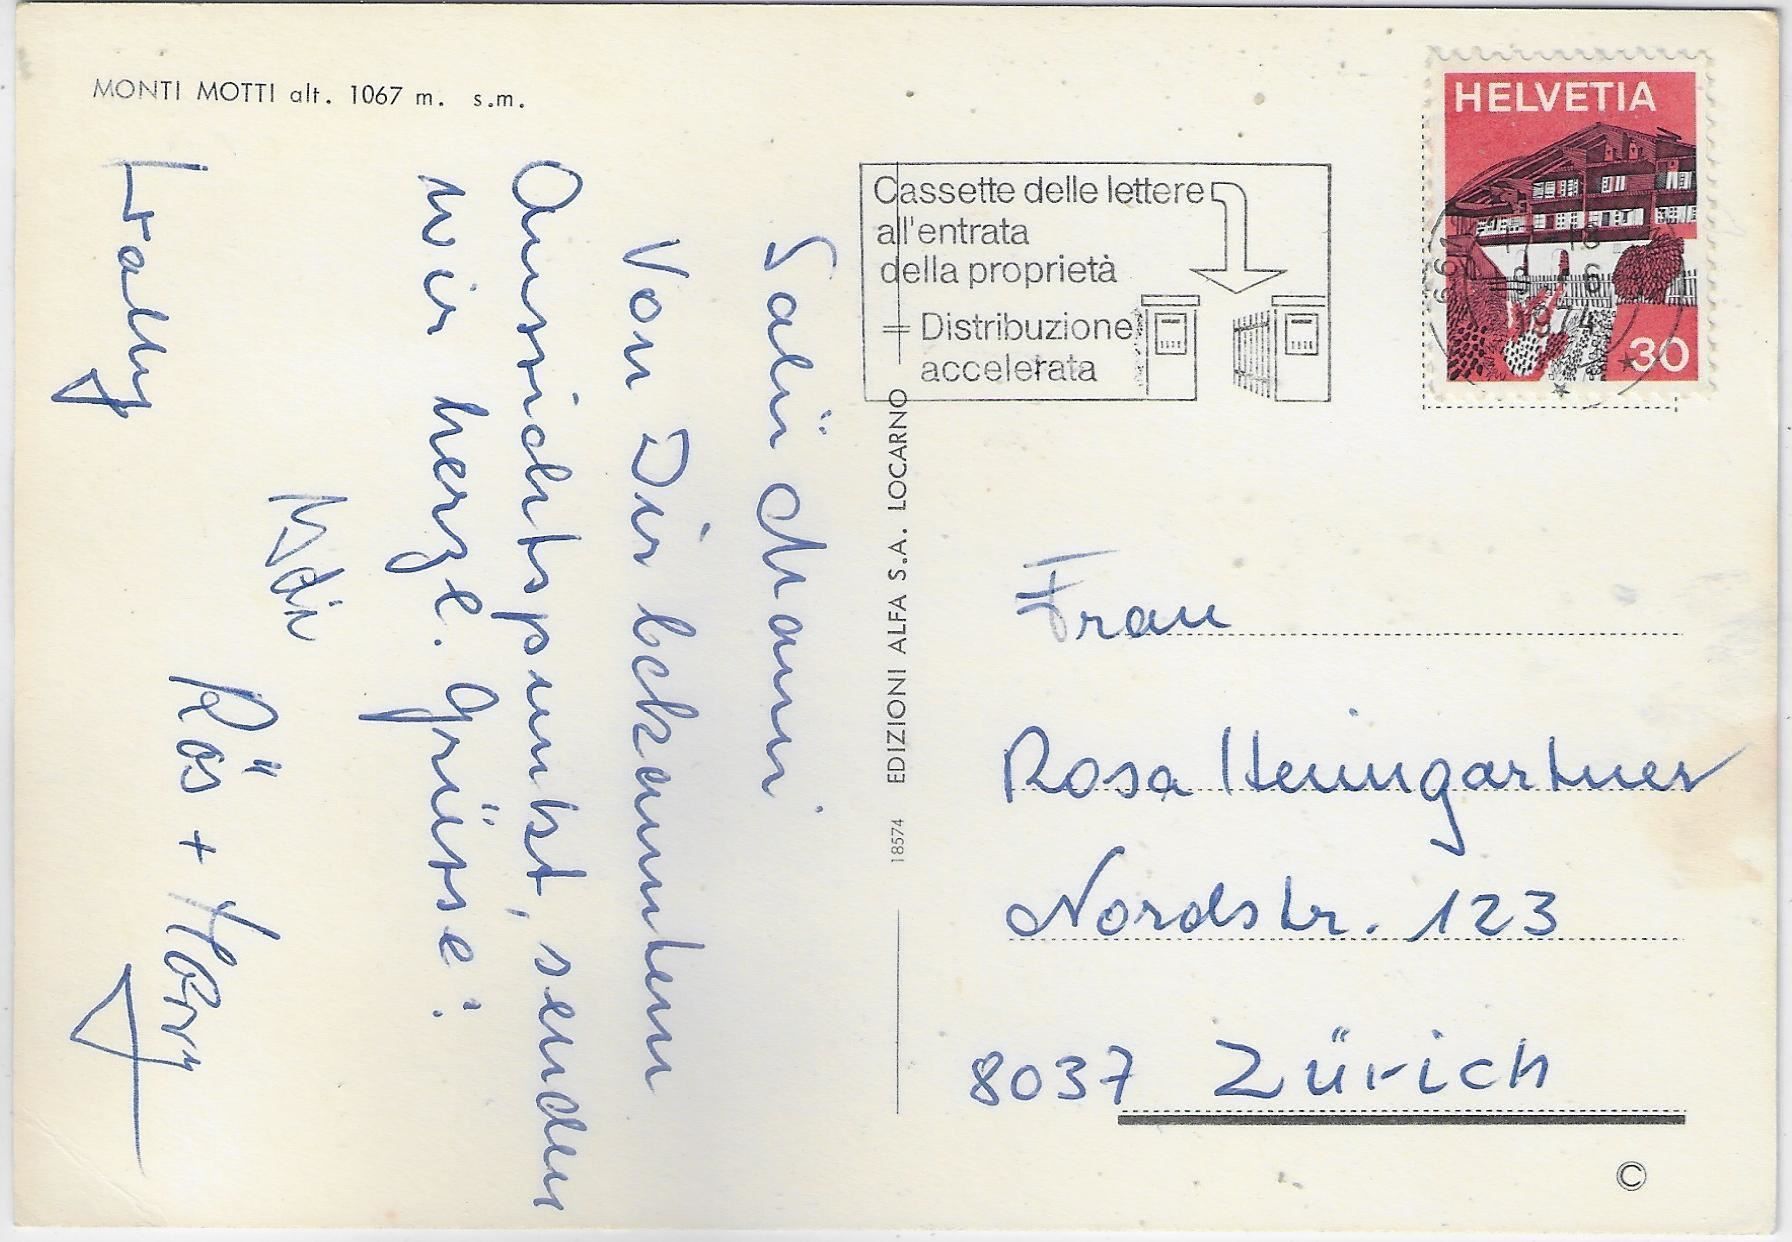 MONTI MOTTI alt. 1067 m. s.m.
Salü Mami
Von Dir bekanntem
Aussichtspunkt, senden
wir herzl. Grüsse:
Rös +
Cassette delle lettere
all'entrata
della proprietà
= Distribuzione
accelerata
HELVETIA
30
18574 EDIZIONI ALFA S.A. LOCARNO
Frau
Rosa Heimgartner
Nordstr. 123
8037 Zürich
©